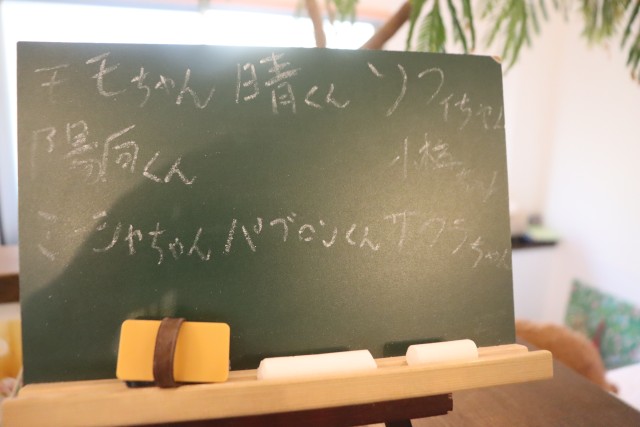 モモちゃん 晴くん ソフィちゃん
陽向くん 小桜ちゃん
ミーシャちゃん パブロンくん サクラちゃん